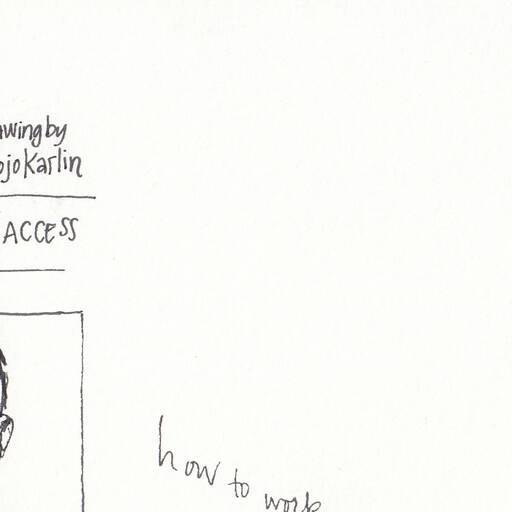 awing by
ojo Karlin
ACCESS
how to work